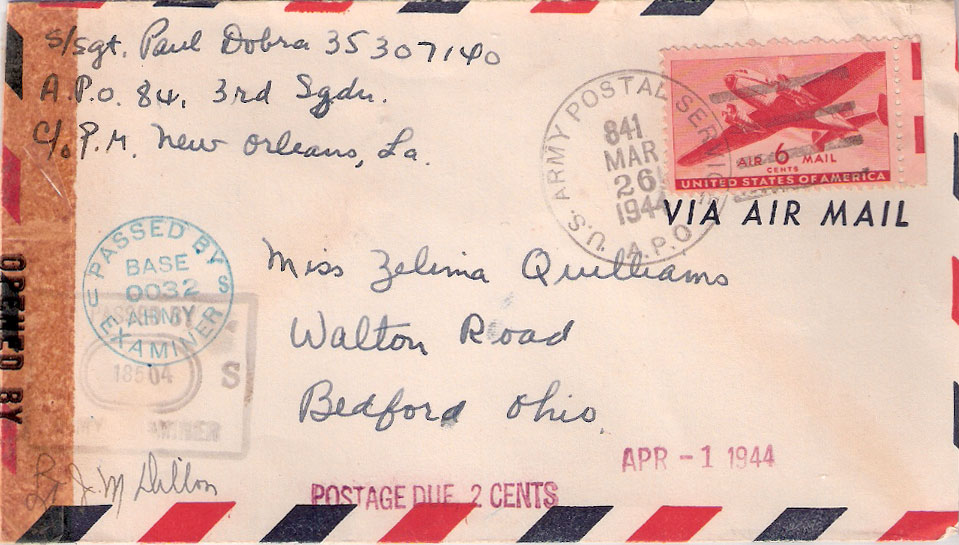 S/Sgt. Paul Dobra 35307140
A.P.O. 841, 3rd Sqdn.
C/o P.M. New Orleans, La.
U.S. ARMY POSTAL SERVICE
A.P.O.
841
MAR
26
1944
AIR 6 MAIL
CENTS
UNITED STATES OF AMERICA
VIA AIR MAIL
PASSED BY
U S
BASE
0032
ARMY
EXAMINER
OPENED BY
PASSED BY
18504
S
Miss Zelima Quilliams
Walton Road
Bedford Ohio.
APR - 1 1944
J. M Dillon
POSTAGE DUE 2 CENTS